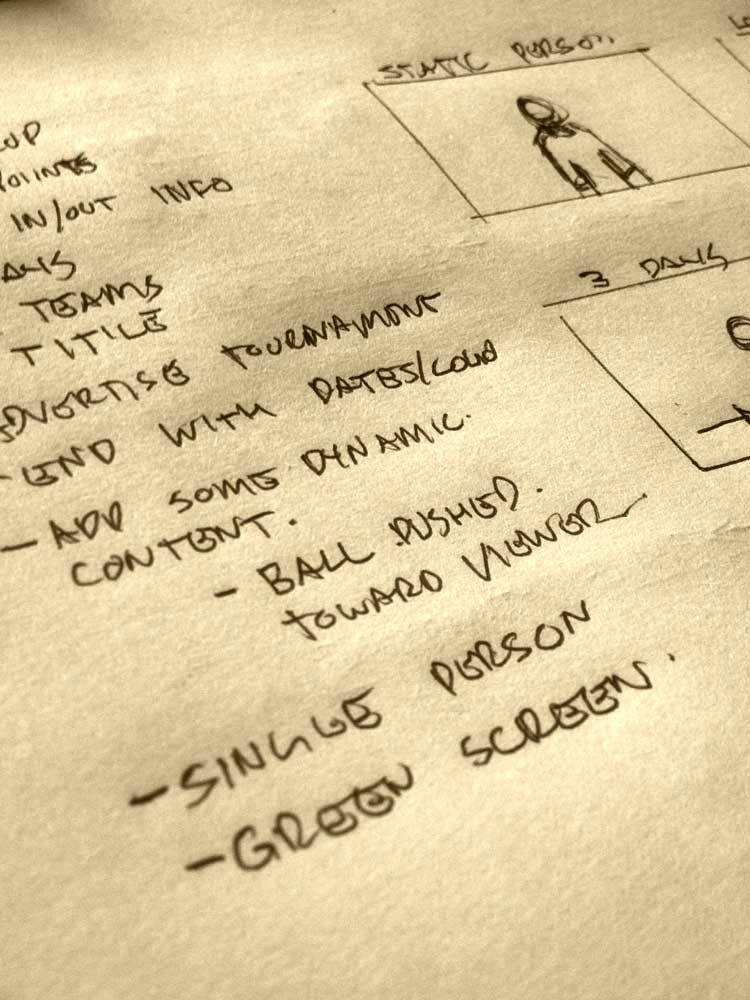 STATIC PERSON
IN/OUT INFO
TEAMS
TITILE
ADVERTISE TOURNAMONT
- END WITH DATES/
- ADD SOME DYNAMIC
CONTENT.
- BALL PUSHED.
TOWARD VIEWER
- SINGLE PERSON
- GREEN SCREEN.
3 DAYS